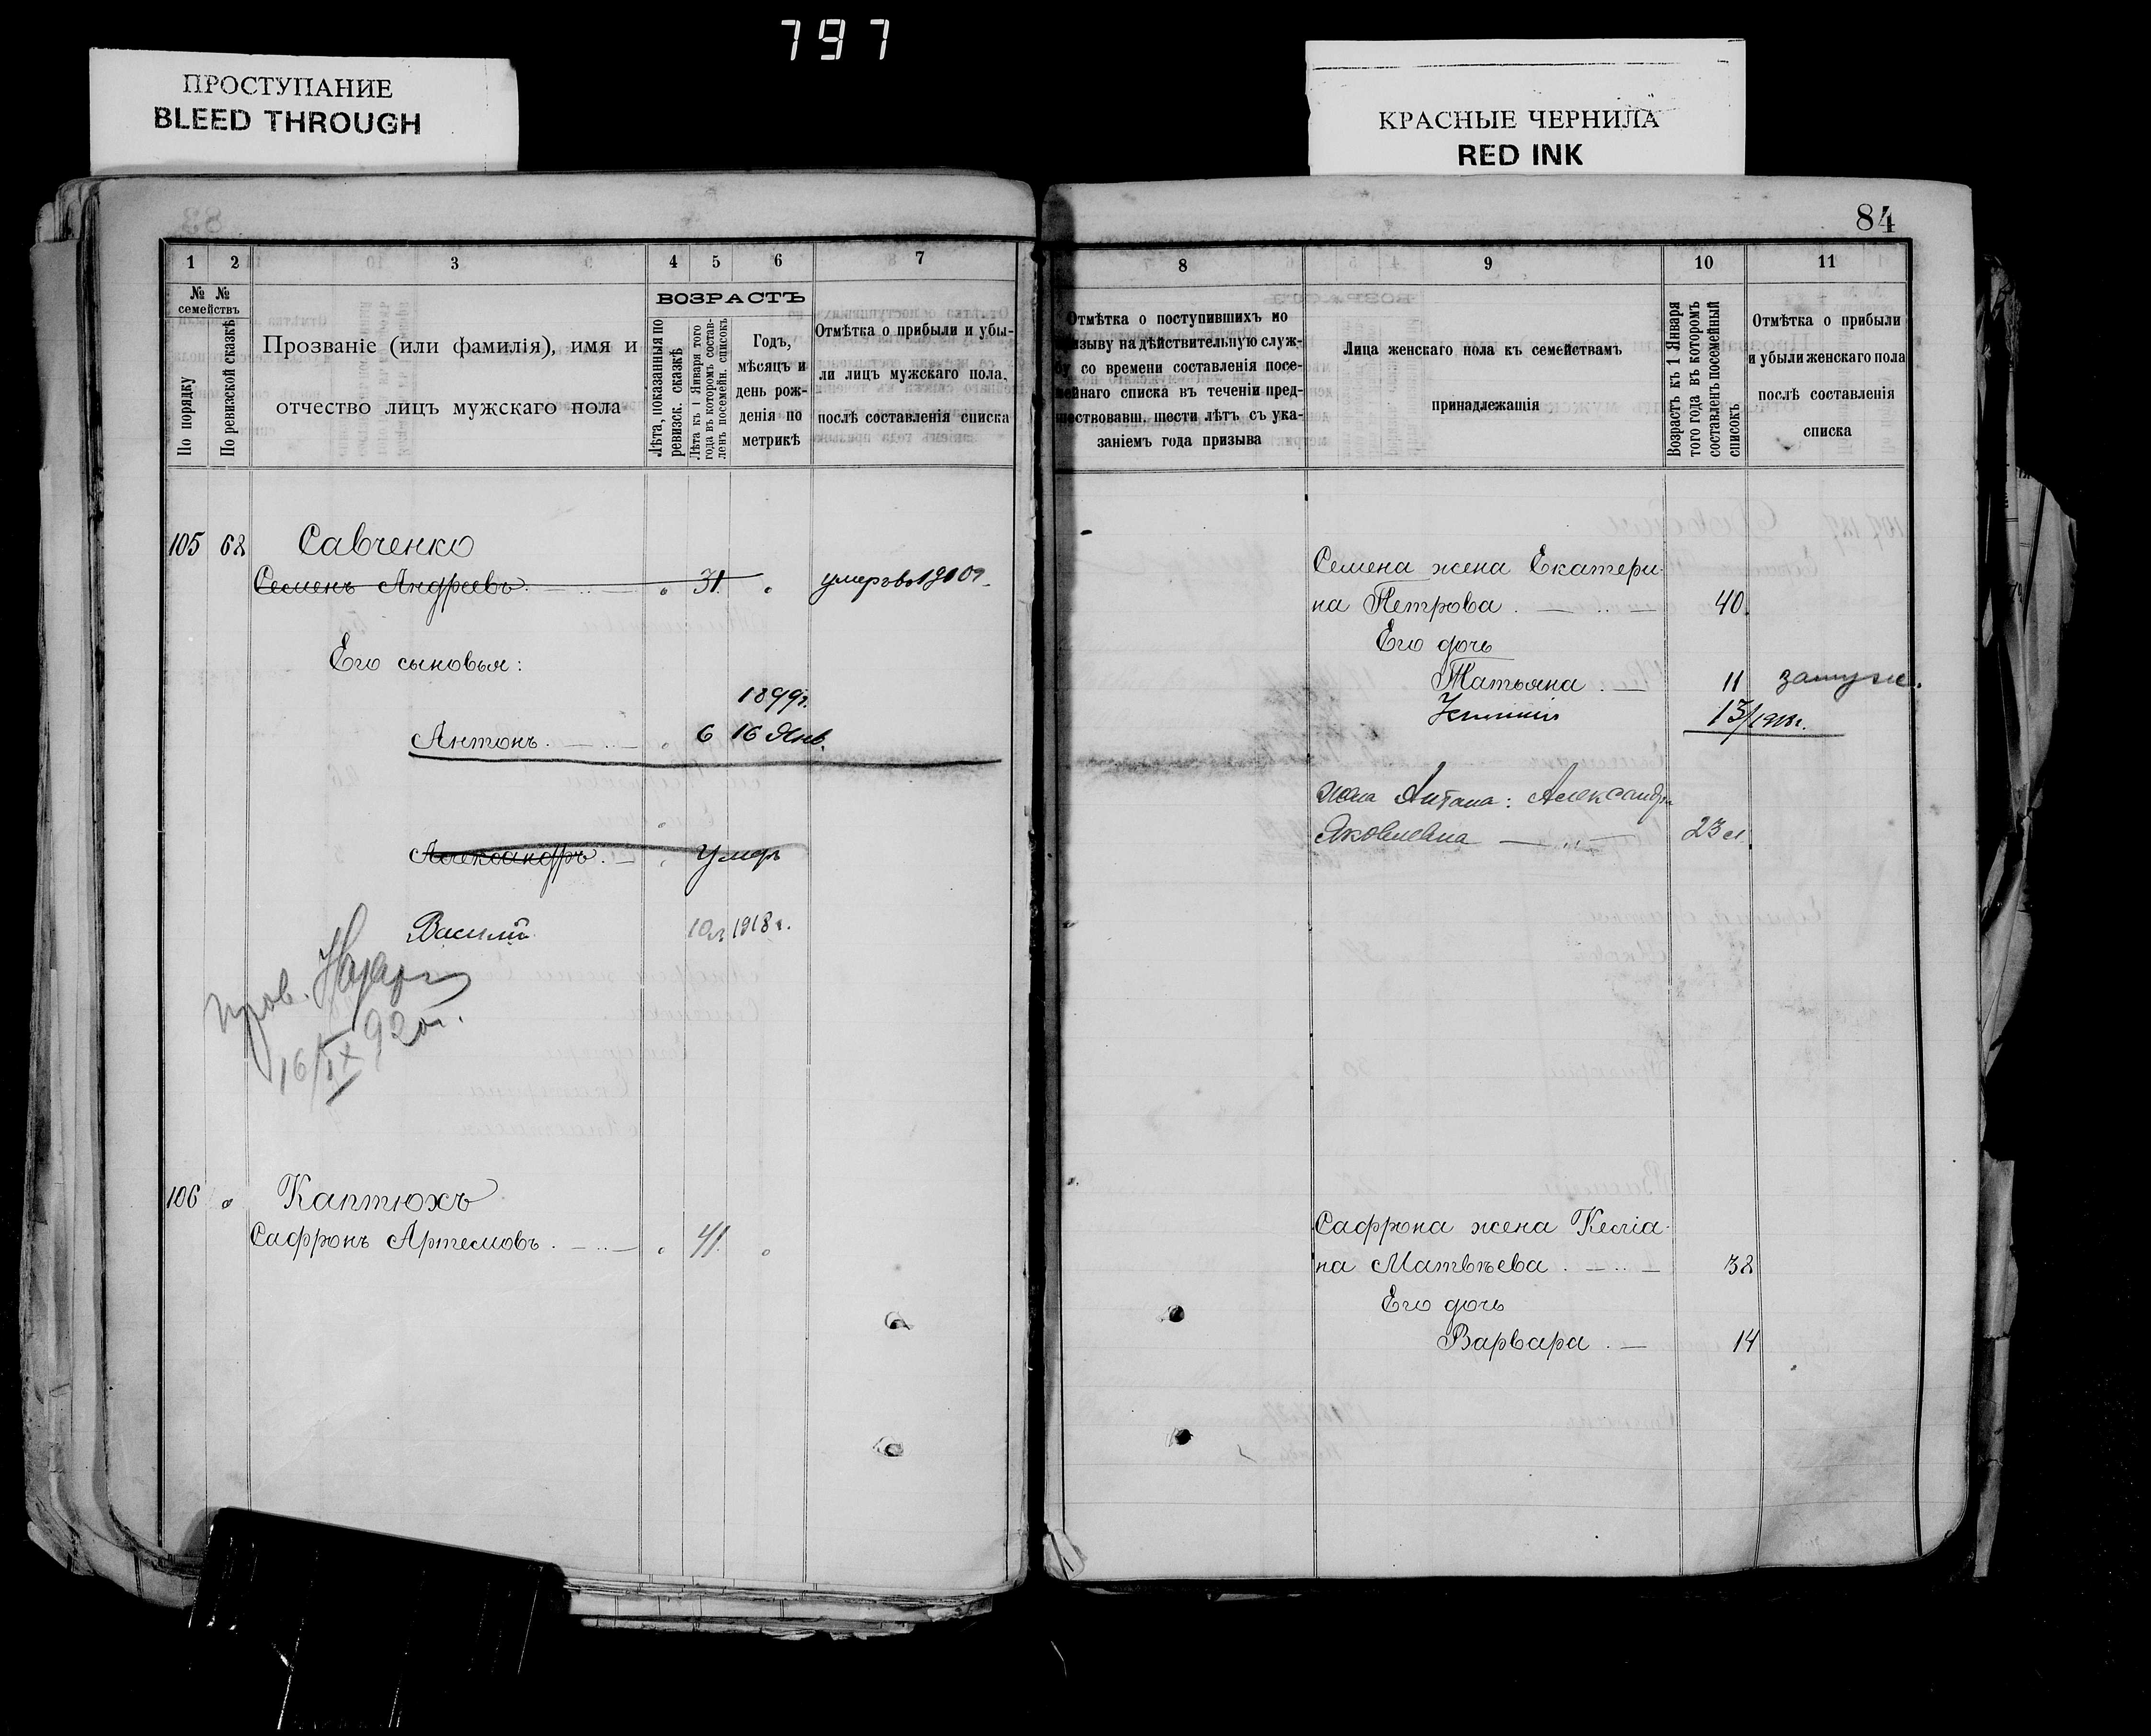 797
ПРОСТУПАНИЕ
BLEED THROUGH
КРАСНЫЕ ЧЕРНИЛА
RED INK
84
1 2 3 4 5 6 7
№ № семействъ
По порядку
По ревизской сказкѣ
Прозваніе (или фамилія), имя и
отчество лицъ мужскаго пола
ВОЗРАСТЪ
Лѣта, показанныя по
ревизск. сказкѣ
Лѣта къ 1 Января того
года въ которомъ состав-
ленъ посемейн. списокъ
Годъ,
мѣсяцъ и
день рож-
денія по
метрикѣ
Отмѣтка о прибыли и убы-
ли лицъ мужскаго пола,
послѣ составленія списка
105 68 Савченко
Семенъ Андреевъ 31 умеръ
Его сыновья:
1899г.
Антонъ 6 16 Янв.
Александръ умеръ
Василий 10л 1918г.
пров.
16/IX 920г.
106 Каптюхъ
Сафронъ Артемовъ 41
8 9 10 11
Отмѣтка о поступившихъ по
призыву на дѣйствительную служ-
бу со времени составленія посе-
мейнаго списка въ теченіи пред-
шествовавш. шести лѣтъ съ ука-
заніемъ года призыва
Лица женскаго пола къ семействамъ
принадлежащія
Возрастъ къ 1 Января
того года въ которомъ
составленъ посемейный
списокъ
Отмѣтка о прибыли
и убыли женскаго пола
послѣ составленія
списка
Семена жена Екатери-
на Петрова 40
Его дочь
Татьяна 11 замуж.
13/1918г.
жена Антона: Александра
Яковлевна 23 л
Сафрона жена Кесліа-
на Матвѣева 38
Его дочь
Варвара 14